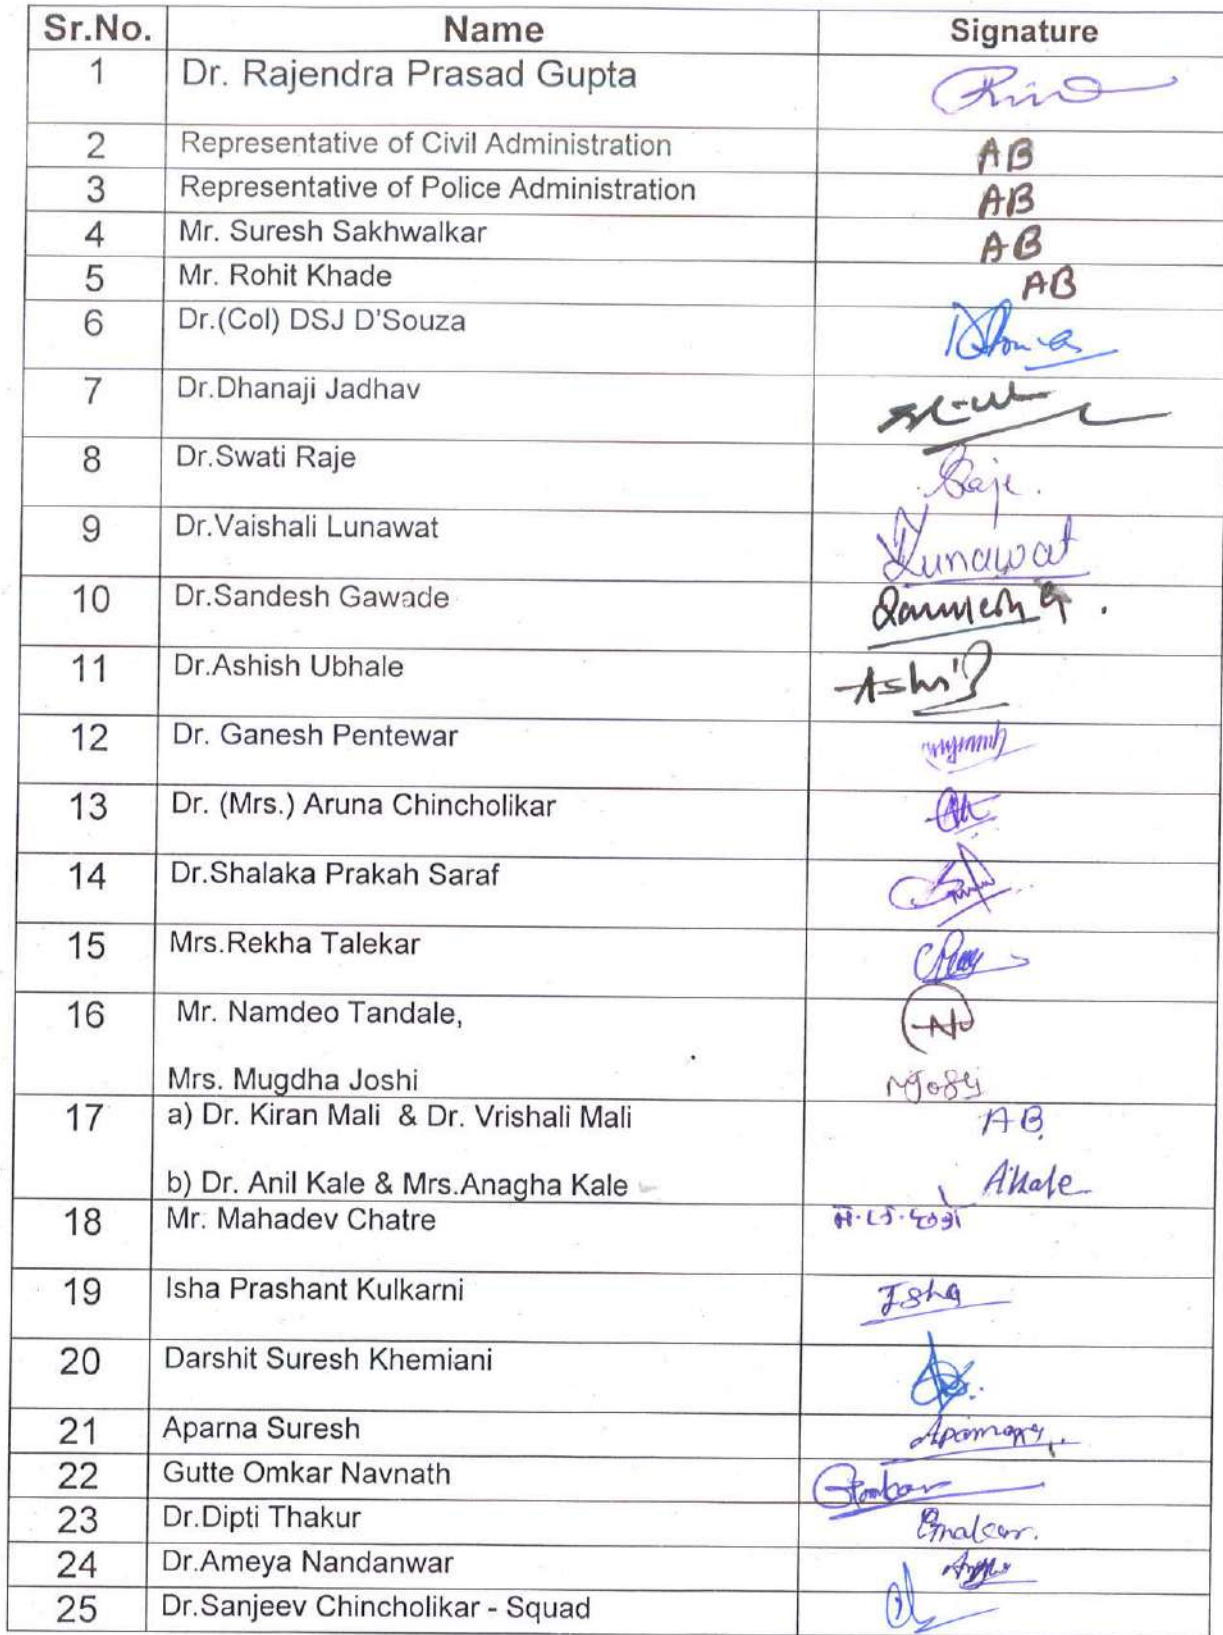 Sr.No. Name Signature
1 Dr. Rajendra Prasad Gupta
2 Representative of Civil Administration AB
3 Representative of Police Administration AB
4 Mr. Suresh Sakhwalkar AB
5 Mr. Rohit Khade AB
6 Dr.(Col) DSJ D'Souza
7 Dr.Dhanaji Jadhav
8 Dr.Swati Raje Raje.
9 Dr.Vaishali Lunawat Lunawat
10 Dr.Sandesh Gawade
11 Dr.Ashish Ubhale
12 Dr. Ganesh Pentewar
13 Dr. (Mrs.) Aruna Chincholikar
14 Dr.Shalaka Prakah Saraf
15 Mrs.Rekha Talekar
16 Mr. Namdeo Tandale,
Mrs. Mugdha Joshi
17 a) Dr. Kiran Mali & Dr. Vrishali Mali AB
b) Dr. Anil Kale & Mrs.Anagha Kale AKale
18 Mr. Mahadev Chatre
19 Isha Prashant Kulkarni Isha
20 Darshit Suresh Khemiani
21 Aparna Suresh
22 Gutte Omkar Navnath
23 Dr.Dipti Thakur
24 Dr.Ameya Nandanwar
25 Dr.Sanjeev Chincholikar - Squad